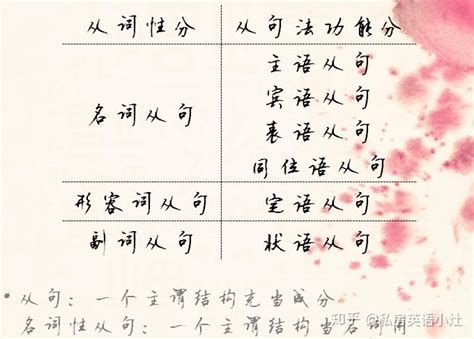 从词性分 从句法功能分
主语从句
宾语从句
名词从句
表语从句
同位语从句
形容词从句 定语从句
副词从句 状语从句
•从句：一个主谓结构充当成分
名词性从句：一个主谓结构当名词用
知乎 @私房英语小灶